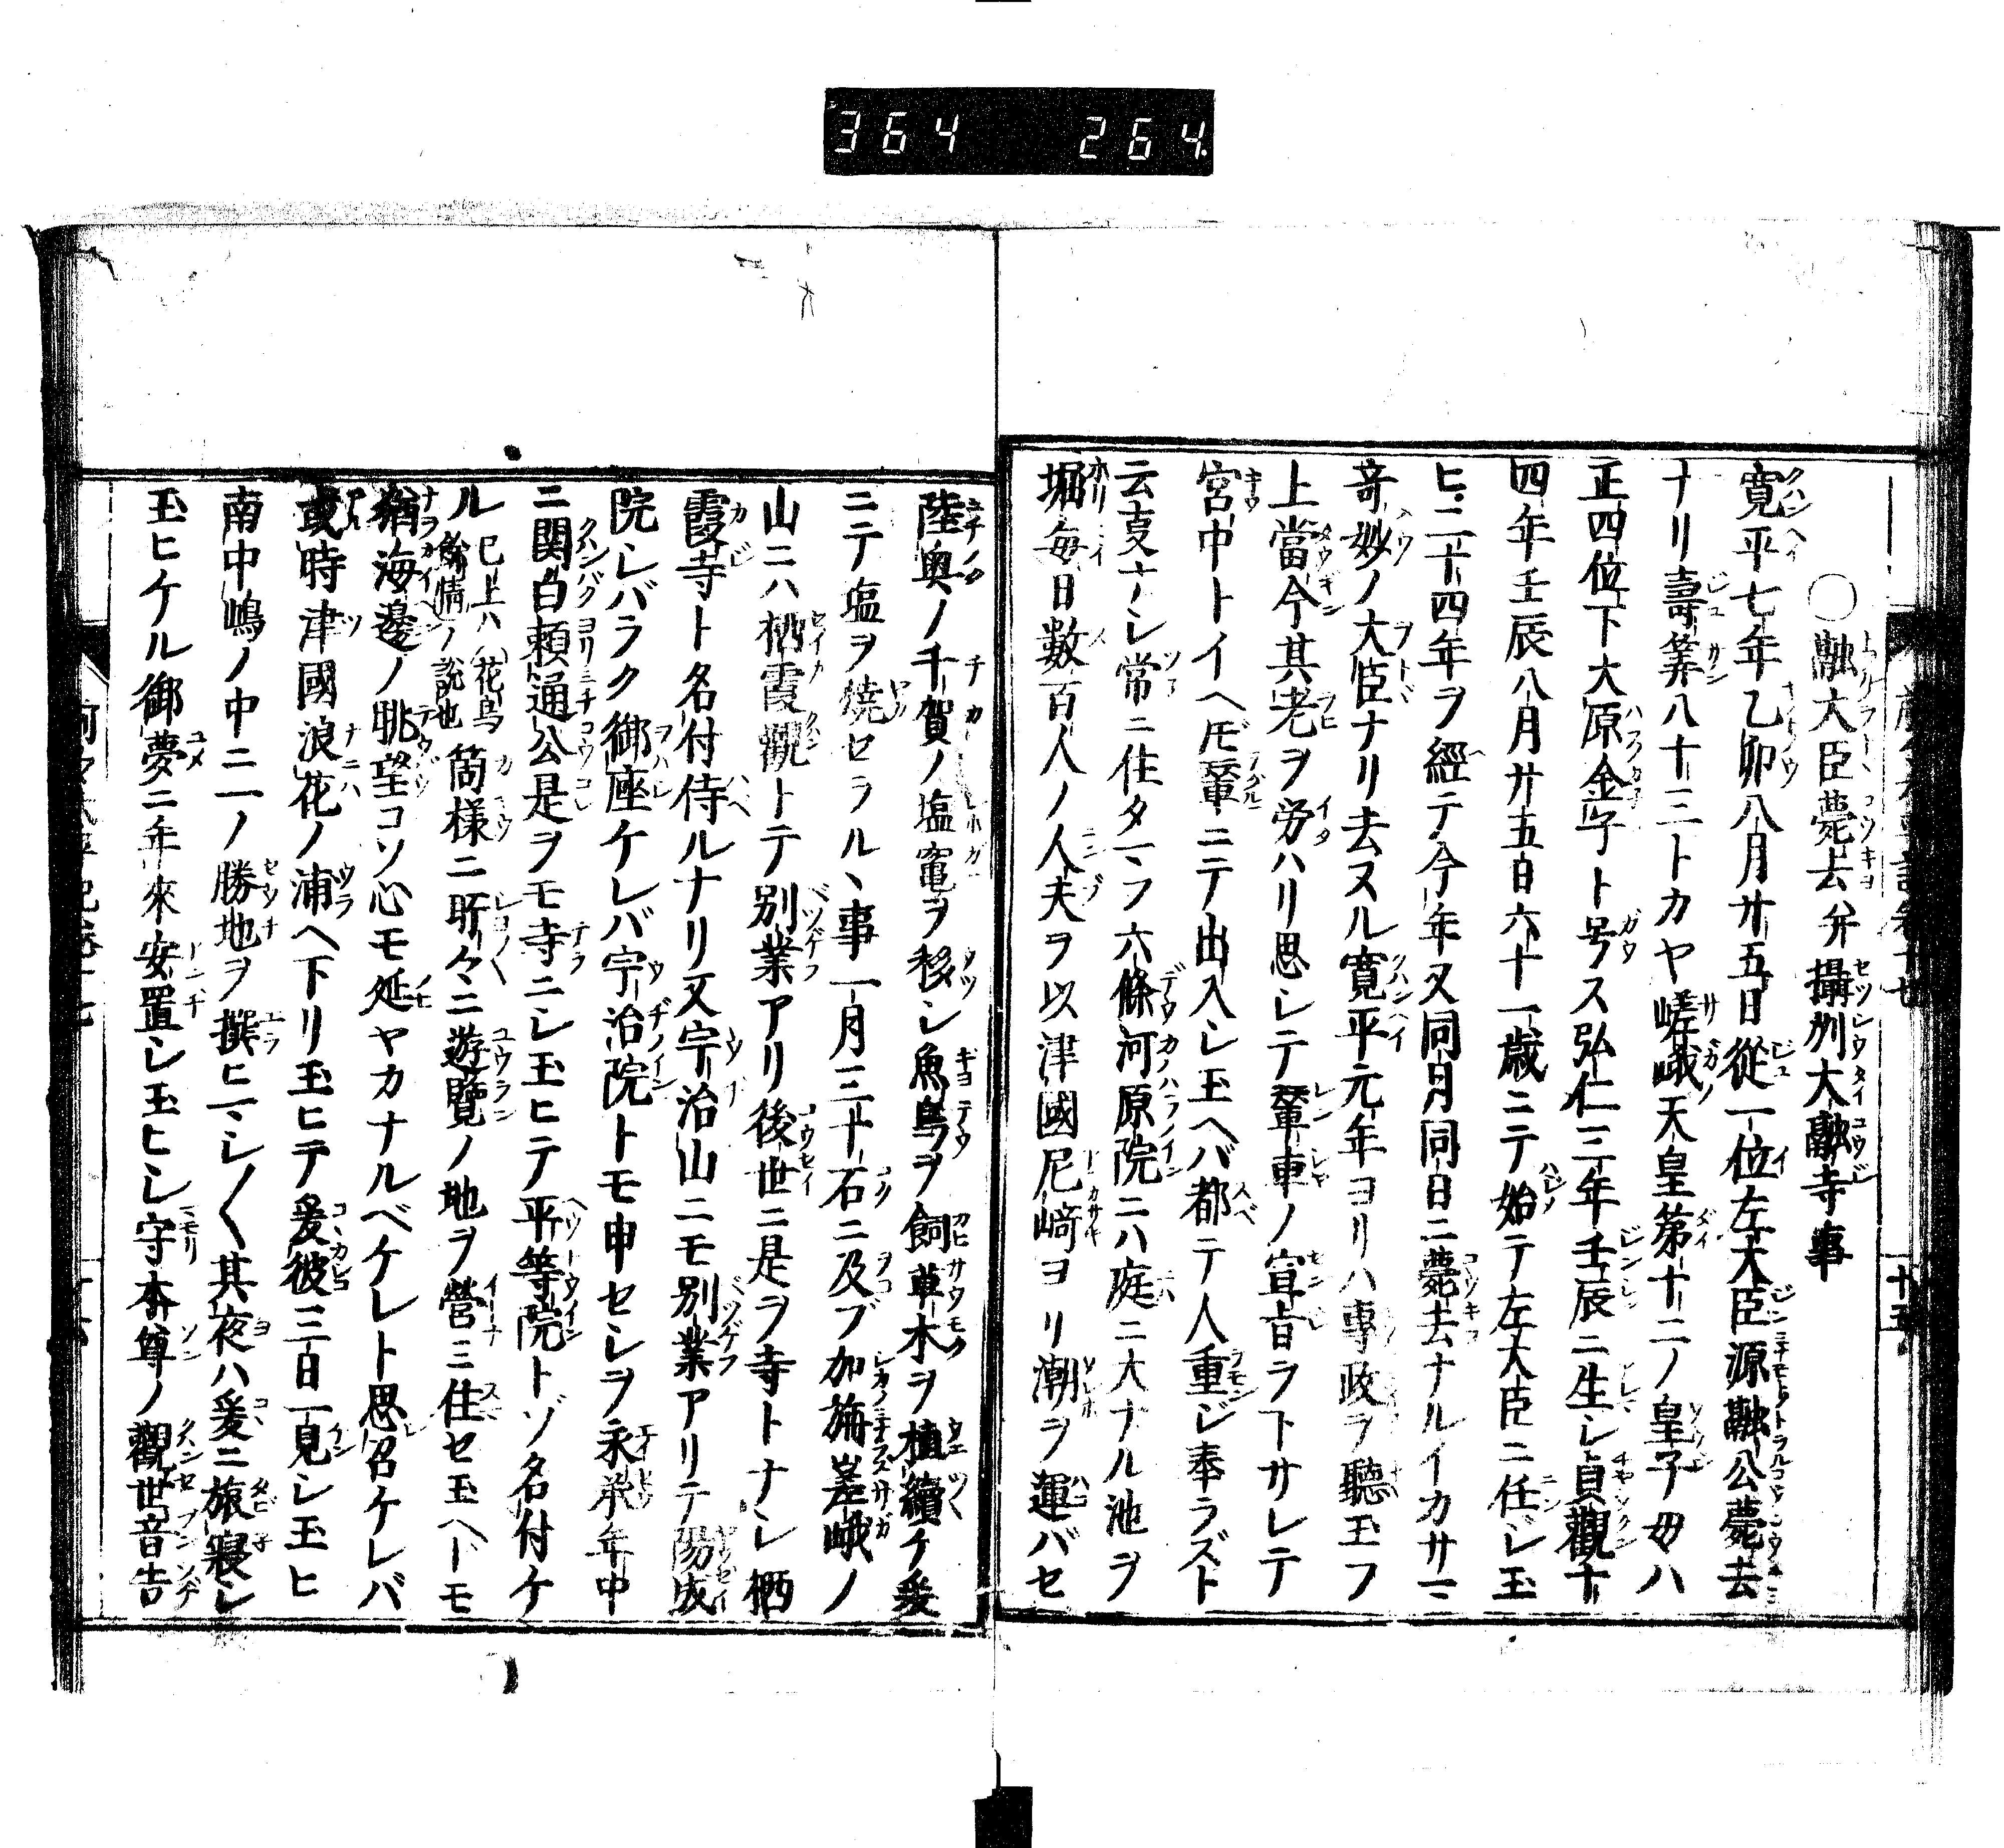 364 264
○融大臣薨去并攝刕大融寺事
寛平七年乙卯八月廿五日從一位左大臣源融公薨去
ナリ壽筭八十三トカヤ嵯峨天皇第十二ノ皇子母ハ
正四位下大原金子ト号ス弘仁三年壬辰ニ生レ貞觀十
四年壬辰八月廿五日六十一歳ニテ始テ左大臣ニ任ジ玉
ヒ二十四年ヲ經テ今年又同月同日ニ薨去ナルイカサマニ
竒妙ノ大臣ナリ去ヌル寛平元年ヨリハ專政ヲ聽玉フ
上當今其老ヲ労ハリ思シテ輦車ノ宣旨ヲ下サレテ
宮中トイヘ𪜈輦ニテ出入シ玉ヘバ都テ人重ジ奉ラズト
云叓ナシ常ニ住タマフ六條河原院ニハ庭ニ大ナル池ヲ
堀毎日数百人ノ人夫ヲ以津國尼﨑ヨリ潮ヲ運バセ
陸奥ノ千賀ノ塩竃ヲ移シ魚鳥ヲ飼草木ヲ植續ケ爰
ニテ塩ヲ燒セラルヽ事一月三十石ニ及ブ加旃嵯峨ノ
山ニハ栖霞觀トテ別業アリ後世ニ是ヲ寺トナシ栖
霞寺ト名付侍ルナリ又宇治山ニモ別業アリテ陽成
院シバラク御座ケレバ宇治院トモ申セシヲ永承年中
ニ関白頼通公是ヲモ寺ニシ玉ヒテ平等院トゾ名付ケ
ル已上ハ花鳥餘情ノ説也箇様ニ所々ニ遊覽ノ地ヲ營ミ住セ玉ヘトモ
猶海邊ノ眺望コソ心モ延ヤカナルベケレト思召ケレバ
或時津國浪花ノ浦ヘ下リ玉ヒテ爰彼三日一見シ玉ヒ
南中嶋ノ中ニ一ノ勝地ヲ撰ヒマシ〳〵其夜ハ爰ニ旅寝シ
玉ヒケル御夢ニ年來安置シ玉ヒシ守本尊ノ觀世音告